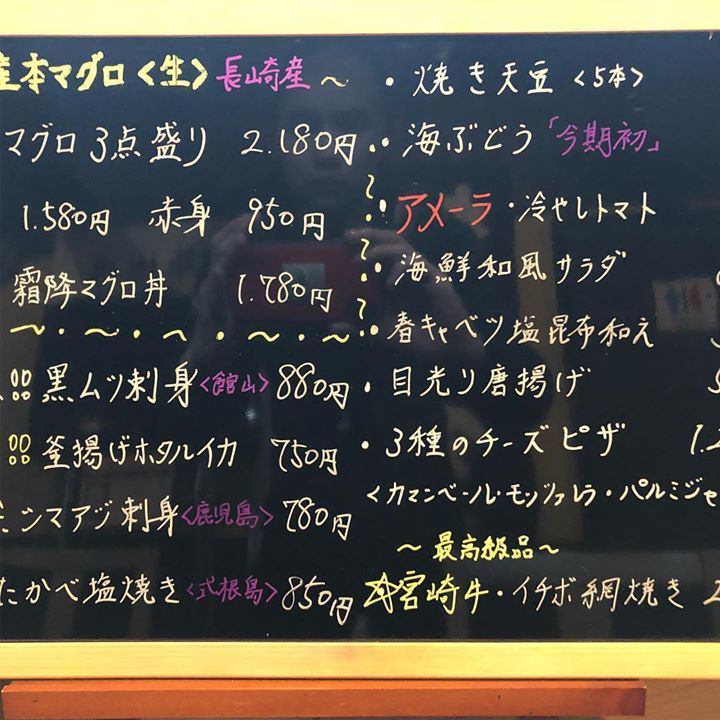 産本マグロ〈生〉長崎産〜
マグロ3点盛り 2.180円
1.580円 赤身 950円
霜降マグロ丼 1.780円
〜・〜・〜・〜・〜
黒ムツ刺身〈館山〉880円
釜揚げホタルイカ 750円
シマアジ刺身〈鹿児島〉780円
たかべ塩焼き〈式根島〉850円
・焼き天豆〈5本〉
・海ぶどう「今期初」
・アメーラ・冷やしトマト
海鮮和風サラダ
・春キャベツ塩昆布和え
・目光り唐揚げ
・3種のチーズピザ 1.2
〈カマンベール・モッツァレラ・パルミジャ
〜最高級品〜
☆宮崎牛・イチボ網焼き 2